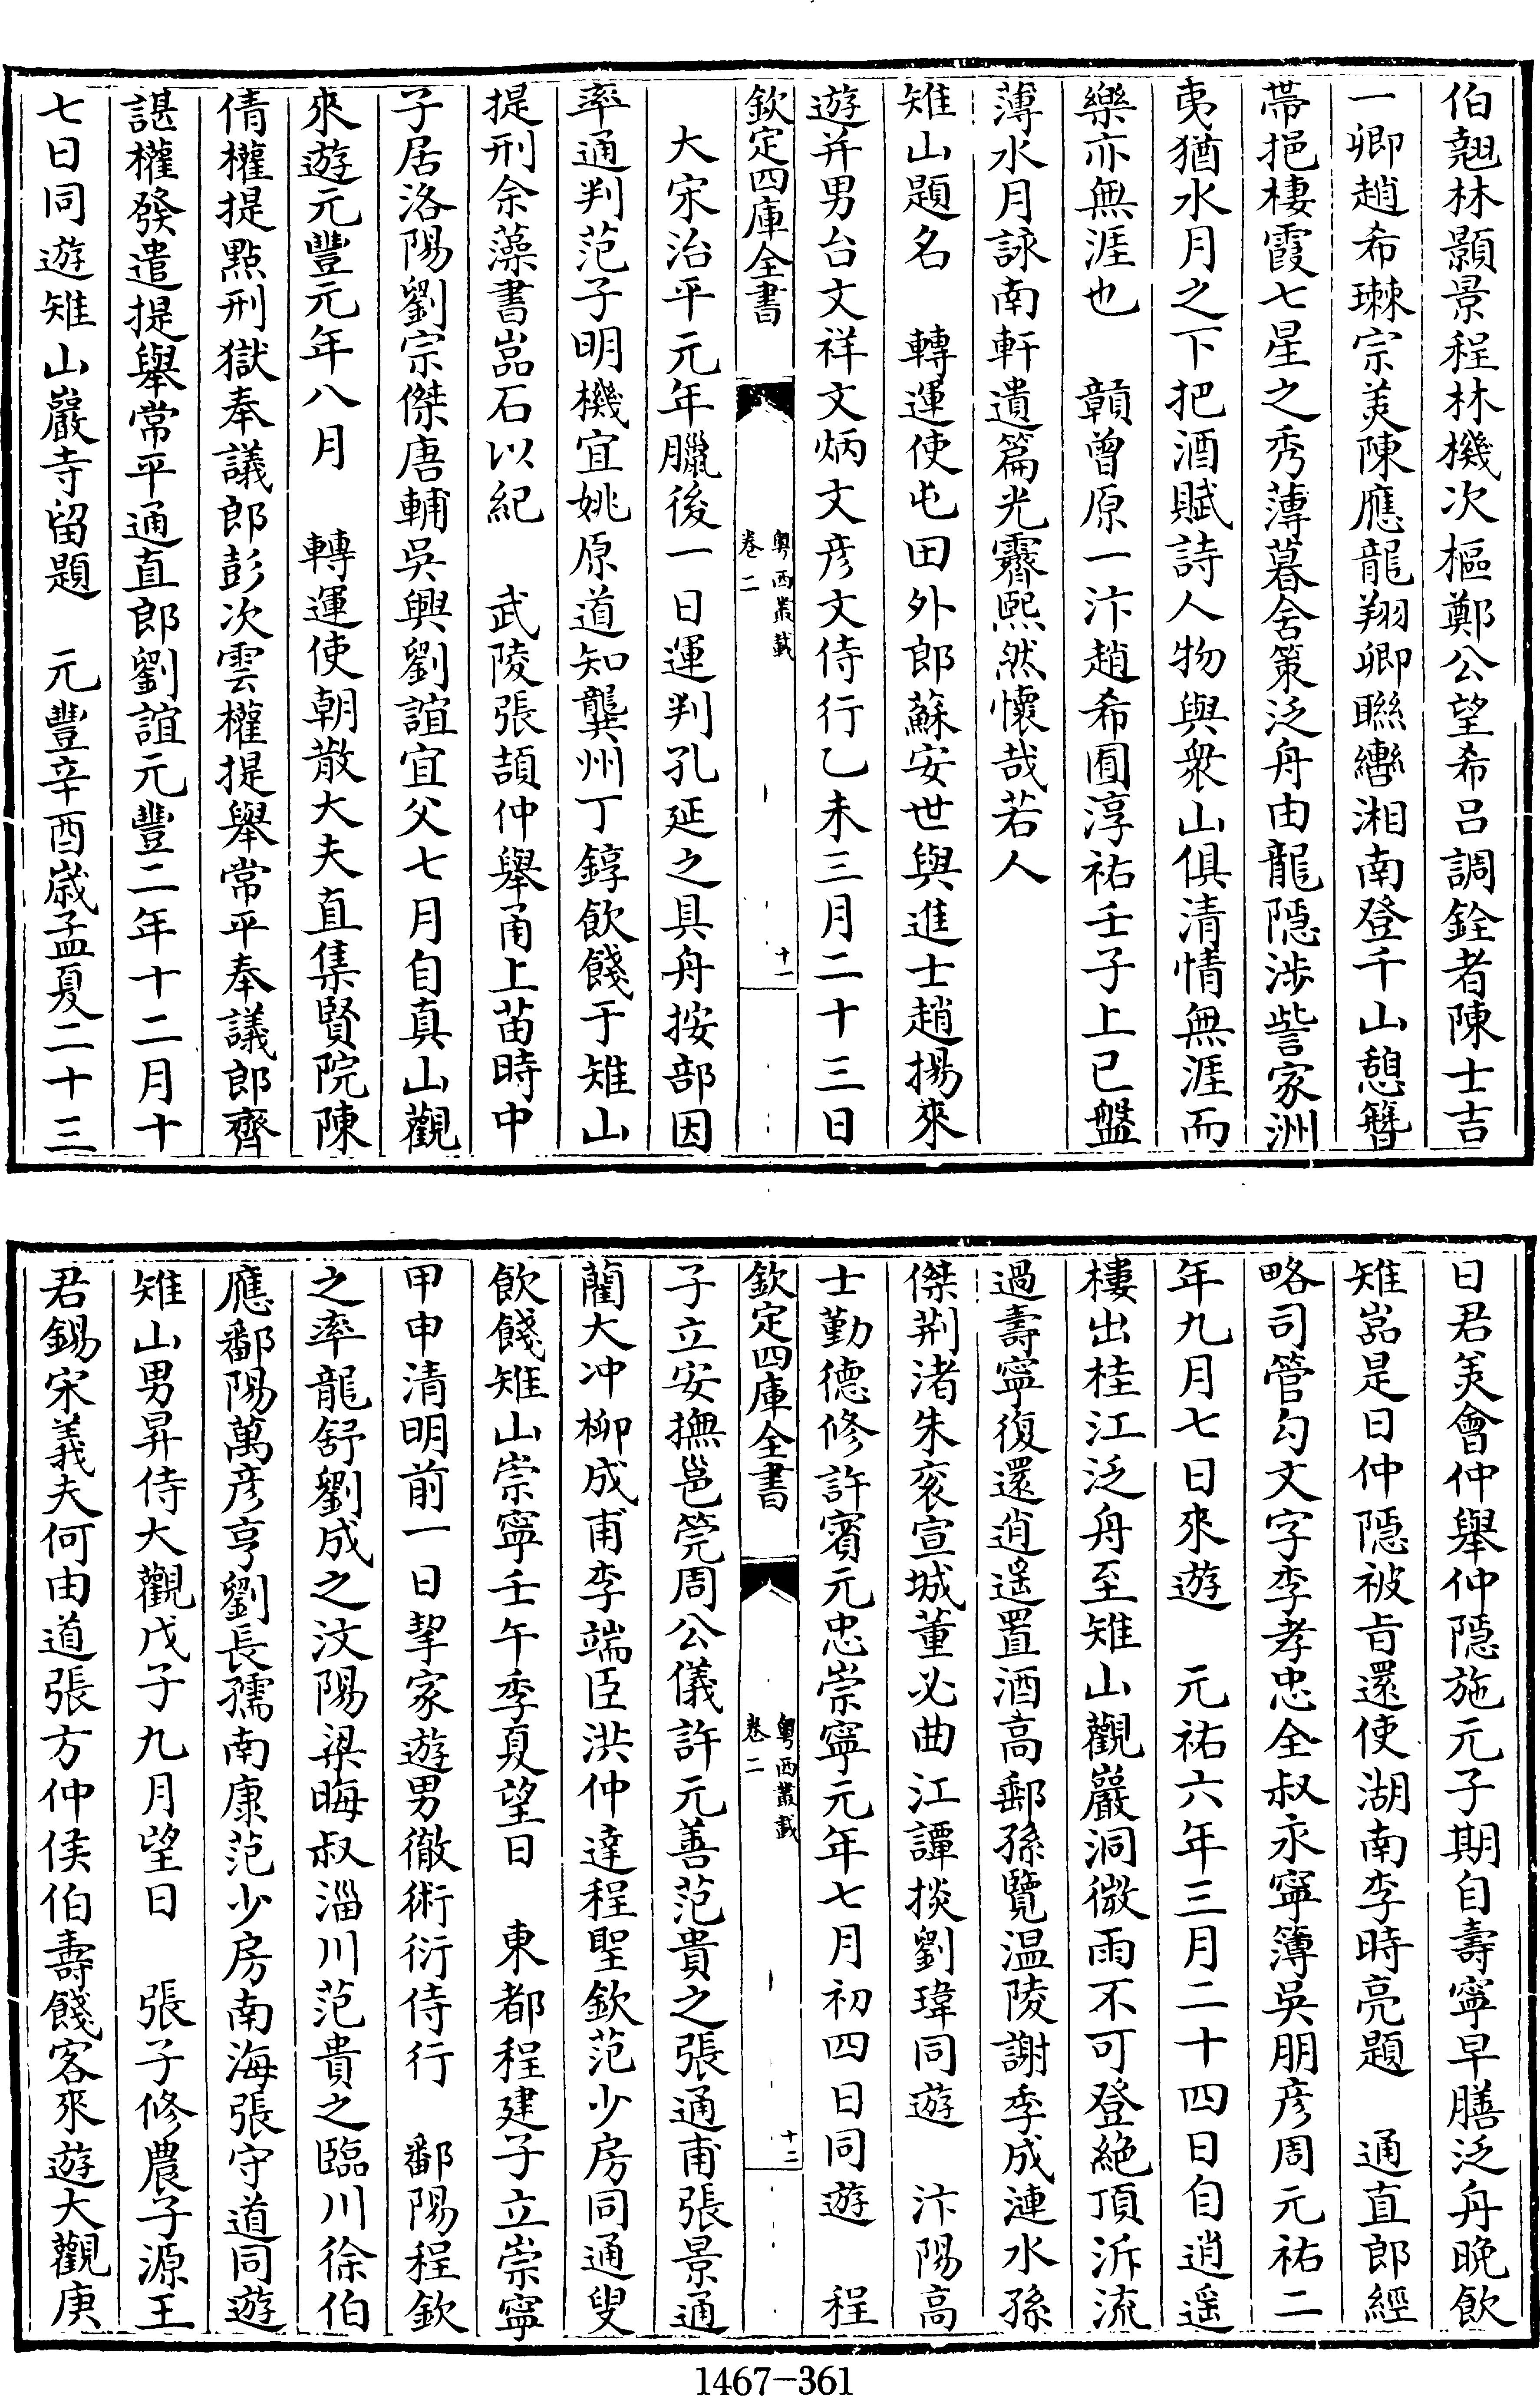 伯翹林顥景程林機次樞鄭公望希呂調銓者陳士吉
一卿趙希㻞宗美陳應龍翔卿聯轡湘南登千山憩簪
帶挹棲霞七星之秀薄暮舍策泛舟由龍隱涉訾家洲
夷猶水月之下把酒賦詩人物與衆山俱清情無涯而
樂亦無涯也　贑曾原一汴趙希囿淳祐壬子上巳盤
薄水月詠南軒遺篇光霽熙然懷哉若人
雉山題名　轉運使屯田外郎蘇安世與進士趙揚來
遊并男台文祥文炳文彥文侍行乙未三月二十三日
欽定四庫全書　粤西叢載　卷二　十一
大宋治平元年臘後一日運判孔延之具舟按部因
率通判范子明機宜姚原道知龔州丁錞飲餞于雉山
提刑余藻書嵓石以紀　武陵張頡仲舉甬上苗時中
子居洛陽劉宗傑唐輔吳興劉誼宜父七月自真山觀
來遊元豐元年八月　轉運使朝散大夫直集賢院陳
倩權提點刑獄奉議郎彭次雲權提舉常平奉議郎齊
諶權發遣提舉常平通直郎劉誼元豐二年十二月十
七日同遊雉山巖寺留題　元豐辛酉歳孟夏二十三
日君美會仲舉仲隱施元子期自壽寧早膳泛舟晚飲
雉嵓是日仲隱被旨還使湖南李時亮題　通直郎經
略司管勾文字李孝忠全叔永寧簿吳朋彥周元祐二
年九月七日來遊　元祐六年三月二十四日自逍遥
樓出桂江泛舟至雉山觀巖洞微雨不可登絶頂泝流
過壽寧復還逍遥置酒高郵孫覽温陵謝季成漣水孫
傑荆渚朱衮宣城董必曲江譚掞劉瑋同遊　汴陽高
士勤德修許賓元忠崇寧元年七月初四日同遊　程
欽定四庫全書　粤西叢載　卷二　十二
子立安撫邕筦周公儀許元善范貴之張通甫張景通
藺大冲柳成甫李端臣洪仲達程聖欽范少房同通叟
飲餞雉山崇寧壬午季夏望日　東都程建子立崇寧
甲申清明前一日挈家遊男徹術衍侍行　鄱陽程欽
之率龍舒劉成之汶陽梁晦叔淄川范貴之臨川徐伯
應鄱陽萬彥亨劉長孺南康范少房南海張守道同遊
雉山男昇侍大觀戊子九月望日　張子修農子源王
君錫宋義夫何由道張方仲侯伯壽餞客來遊大觀庚
1467-361